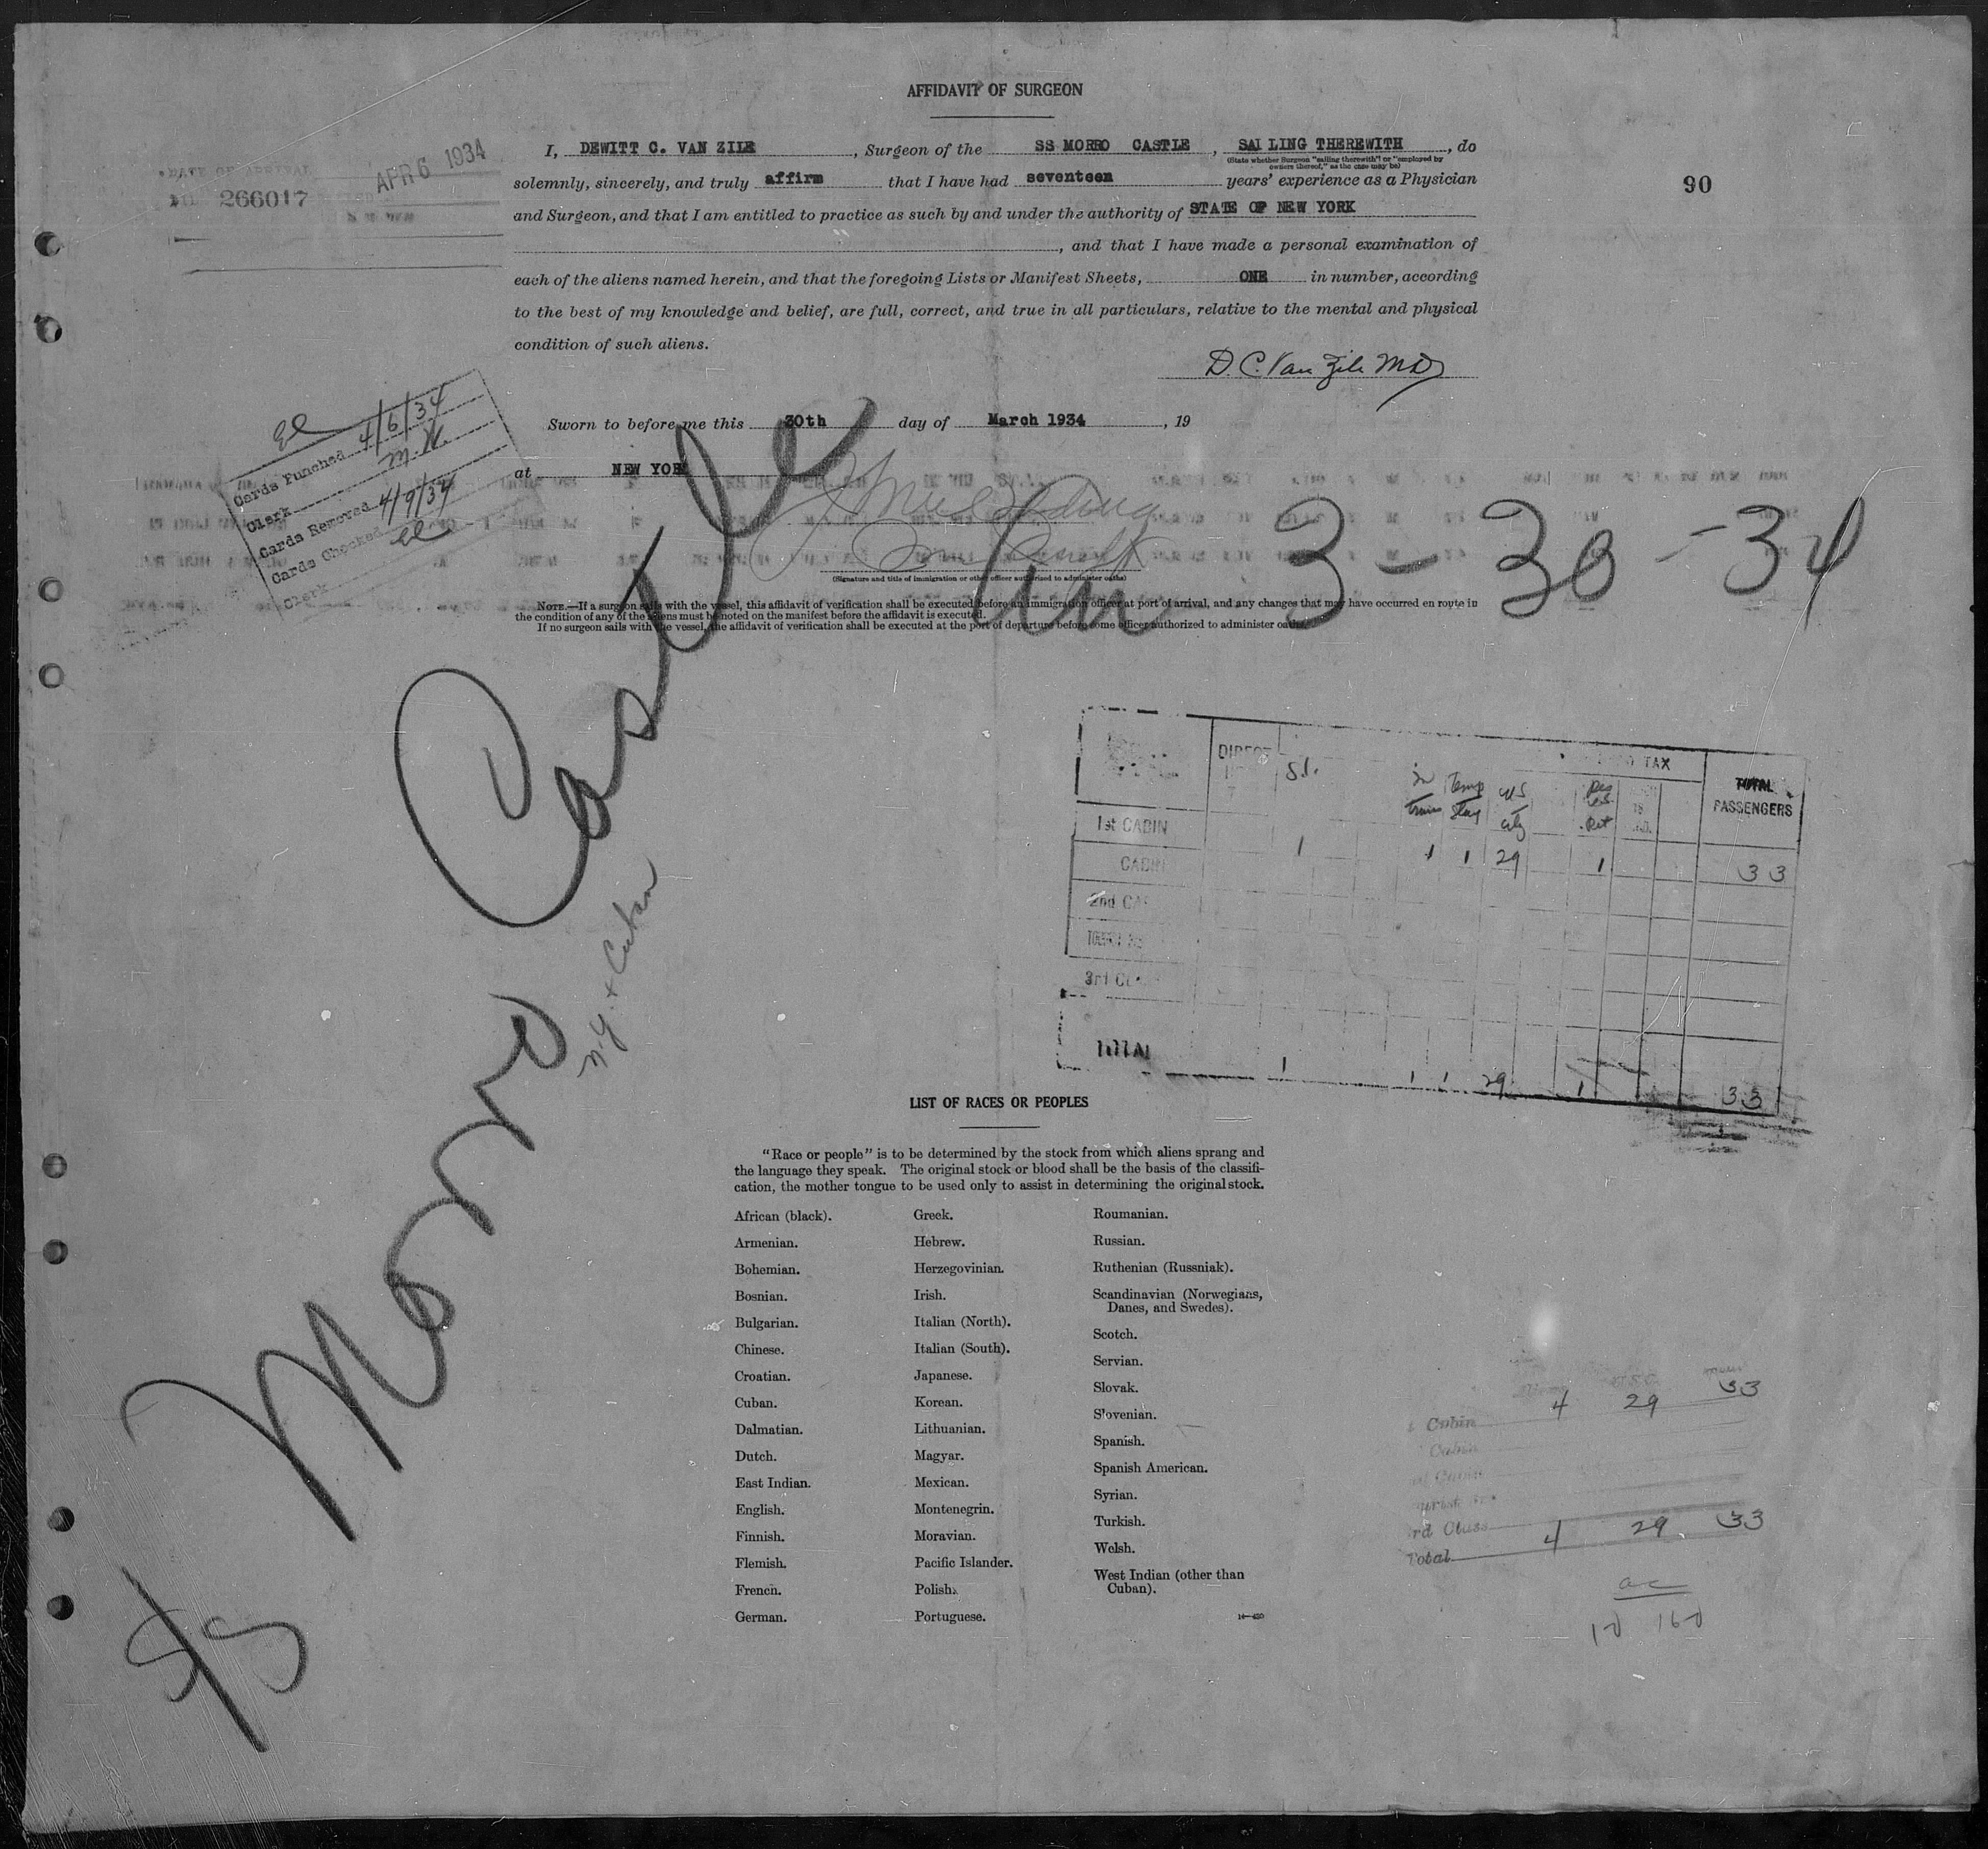 AFFIDAVIT OF SURGEON
I, DEWITT C. VAN ZILE, Surgeon of the SS MORRO CASTLE, SAI LING THEREWITH, do
(State whether Surgeon "sailing therewith" or "employed by
owners thereof," as the case may be)
solemnly, sincerely, and truly affirm that I have had seventeen years' experience as a Physician
and Surgeon, and that I am entitled to practice as such by and under the authority of STATE OF NEW YORK
, and that I have made a personal examination of
each of the aliens named herein, and that the foregoing Lists or Manifest Sheets, ONE in number, according
to the best of my knowledge and belief, are full, correct, and true in all particulars, relative to the mental and physical
condition of such aliens.
D. C. Van Zile MD
Sworn to before me this 30th day of March 1934, 19
at NEW YORK
(Signature and title of immigration or other officer authorized to administer oaths)
NOTE.—If a surgeon sails with the vessel, this affidavit of verification shall be executed before an immigration officer at port of arrival, and any changes that may have occurred en route in
the condition of any of the aliens must be noted on the manifest before the affidavit is executed.
If no surgeon sails with the vessel, the affidavit of verification shall be executed at the port of departure before some officer authorized to administer oaths.
DATE OF ARRIVAL
266017
APR 6 1934
90
Cards Punched 4/6/34
Clerk M.W.
Cards Removed 4/9/34
Cards Checked
Clerk
S/S Morro Castle
N.Y. + Cuban
3-30-34
DIRECT S.I. TAX TOTAL PASSENGERS
In Trans Temp Stay US City
1st CABIN 1 1 1 29 1 33
CABIN
2nd CA
3rd
TOTAL 1 1 1 29 1 33
LIST OF RACES OR PEOPLES
"Race or people" is to be determined by the stock from which aliens sprang and
the language they speak. The original stock or blood shall be the basis of the classifi-
cation, the mother tongue to be used only to assist in determining the original stock.
African (black).
Armenian.
Bohemian.
Bosnian.
Bulgarian.
Chinese.
Croatian.
Cuban.
Dalmatian.
Dutch.
East Indian.
English.
Finnish.
Flemish.
French.
German.
Greek.
Hebrew.
Herzegovinian.
Irish.
Italian (North).
Italian (South).
Japanese.
Korean.
Lithuanian.
Magyar.
Mexican.
Montenegrin.
Moravian.
Pacific Islander.
Polish.
Portuguese.
Roumanian.
Russian.
Ruthenian (Russniak).
Scandinavian (Norwegians,
Danes, and Swedes).
Scotch.
Servian.
Slovak.
Slovenian.
Spanish.
Spanish American.
Syrian.
Turkish.
Welsh.
West Indian (other than
Cuban).
Cabin 4 29 33
Cabin
Cabin
rd Class
Total 4 29 33